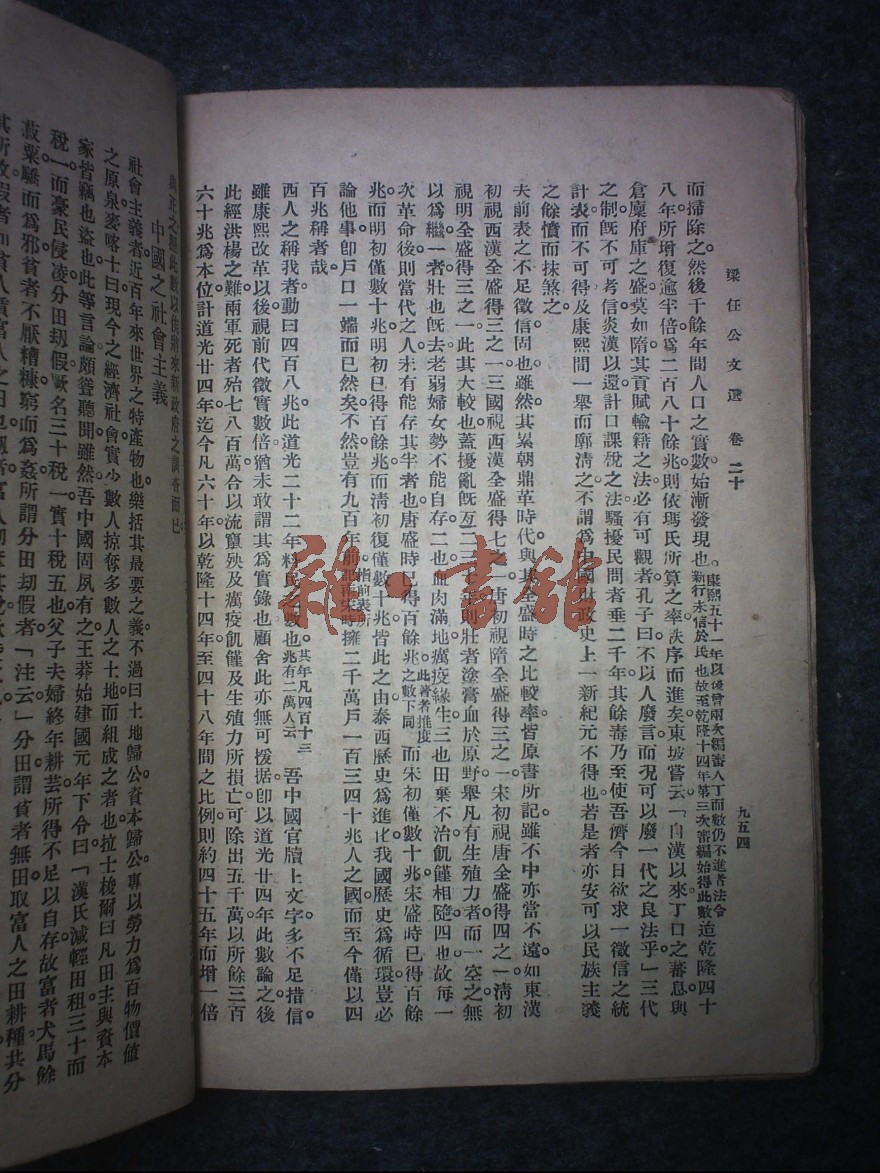 梁任公文選 卷二十 九五四
而掃除之然後千餘年間人口之實數始漸發現也。康熙五十一年以後曾兩次編審人丁而數仍不進者法令新行未信於民也故至乾隆十四年第三次審編始得此數迨乾隆四十
八年所增復逾半倍爲二百八十餘兆則依瑪氏所算之率秩序而進矣東坡嘗云「自漢以來丁口之蕃息與
倉廩府庫之盛莫如隋其貢賦輸籍之法必有可觀者孔子曰不以人廢言而況可以廢一代之良法乎」三代
之制既不可考信炎漢以還計口課稅之法騷擾民間者垂二千年其餘毒乃至使吾儕今日欲求一徵信之統
計表而不可得及康熙間一舉而廓清之不謂爲中國財政史上一新紀元不得也若是者亦安可以民族主義
之餘憤而抹煞之。
夫前表之不足徵信固也雖然其累朝鼎革時代與其全盛時之比較率皆原書所記雖不中亦當不遠如東漢
初視西漢全盛得三之一三國視西漢全盛得七之一唐初視隋全盛得三之一宋初視唐全盛得四之一清初
視明全盛得三之一此其大較也蓋擾亂既亙二三十年則壯者塗膏血於原野舉凡有生殖力者而一空之無
以爲繼一者壯也既去老弱婦女勢不能自存二也血肉滿地癘疫緣生三也田棄不治飢饉相隨四也故每一
次革命後則當代之人未有能存其半者也唐盛時已得百餘兆此著者推度之數下同而宋初僅數十兆宋盛時已得百餘
兆而明初僅數十兆明初已得百餘兆而清初復僅數十兆皆此之由泰西歷史爲進化我國歷史爲循環豈必
論他事即戶口一端而已然矣不然豈有九百年前指前表所擁二千萬戶一百三四十兆人之國而至今僅以四
百兆稱者哉。
西人之稱我者動曰四百八兆此道光二十二年料民之數也其年凡四百十三兆有二萬人云吾中國官牘上文字多不足措信
雖康熙改革以後視前代徵實數倍猶未敢謂其爲實錄也顧舍此亦無可援据即以道光廿四年此數論之後
此經洪楊之難兩軍死者殆七八百萬合以流竄殃及癘疫飢饉及生殖力所損亡可除出五千萬以所餘三百
六十兆爲本位計道光廿四年迄今凡六十年以乾隆十四年至四十八年間之比例則約四十五年而增一倍
中國之社會主義
社會主義者近百年來世界之特產物也櫽括其最要之義不過曰土地歸公資本歸公專以勞力爲百物價值
之原泉麥喀士曰現今之經濟社會實少數人掠奪多數人之土地而組成之者也拉士梭爾曰凡田主與資本
家皆竊也盜也此等言論頗聳聽聞雖然吾中國固夙有之王莽始建國元年下令曰「漢氏減輕田租三十而
稅一而豪民侵凌分田刼假厥名三十稅一實十稅五也父子夫婦終年耕芸所得不足以自存故富者犬馬餘
菽粟驕而爲邪貧者不厭糟糠窮而爲姦所謂分田刧假者「注云」分田謂貧者無田取富人之田耕種共分
雜·書館